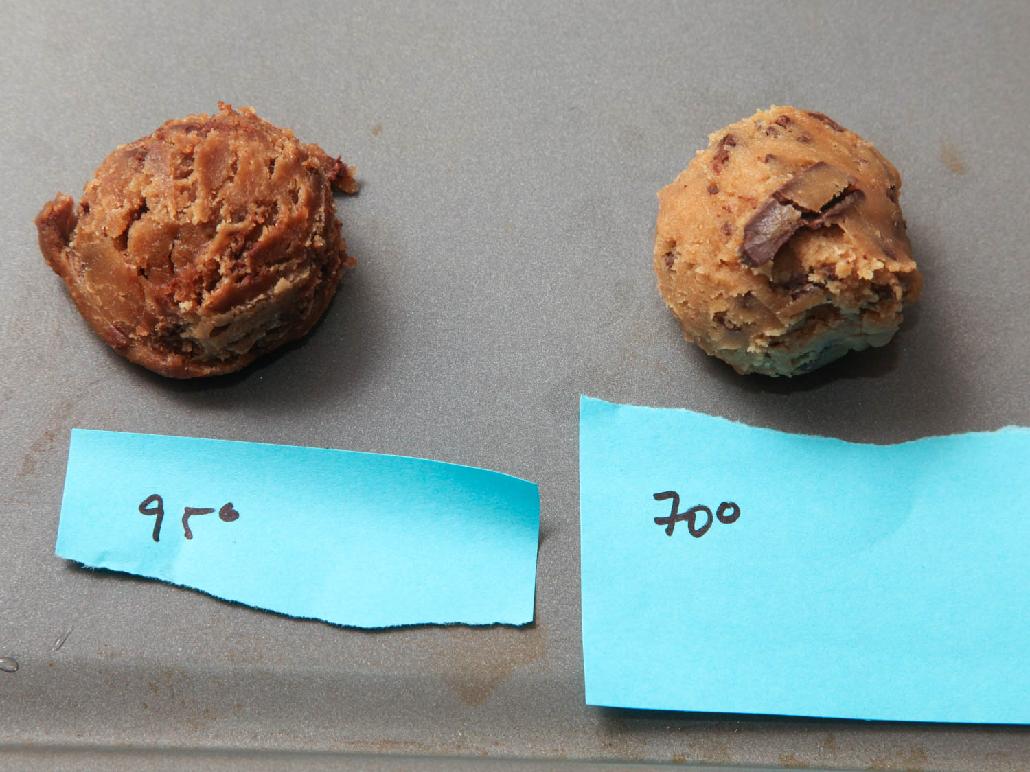 95°
70°